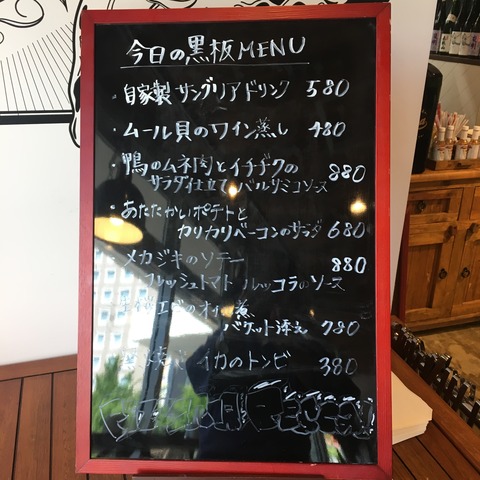 今日の黒板MENU
・自家製 サングリアドリンク 580
・ムール貝のワイン蒸し 480
・鴨のムネ肉とイチヂクの
サラダ仕立て バルサミコソース 880
・あたたかいポテトと
カリカリベーコンのサラダ 680
メカジキのソテー
フレッシュトマト ルッコラのソース 880
生桜エビのオイル煮
バケット添え 780
イカのトンビ 380